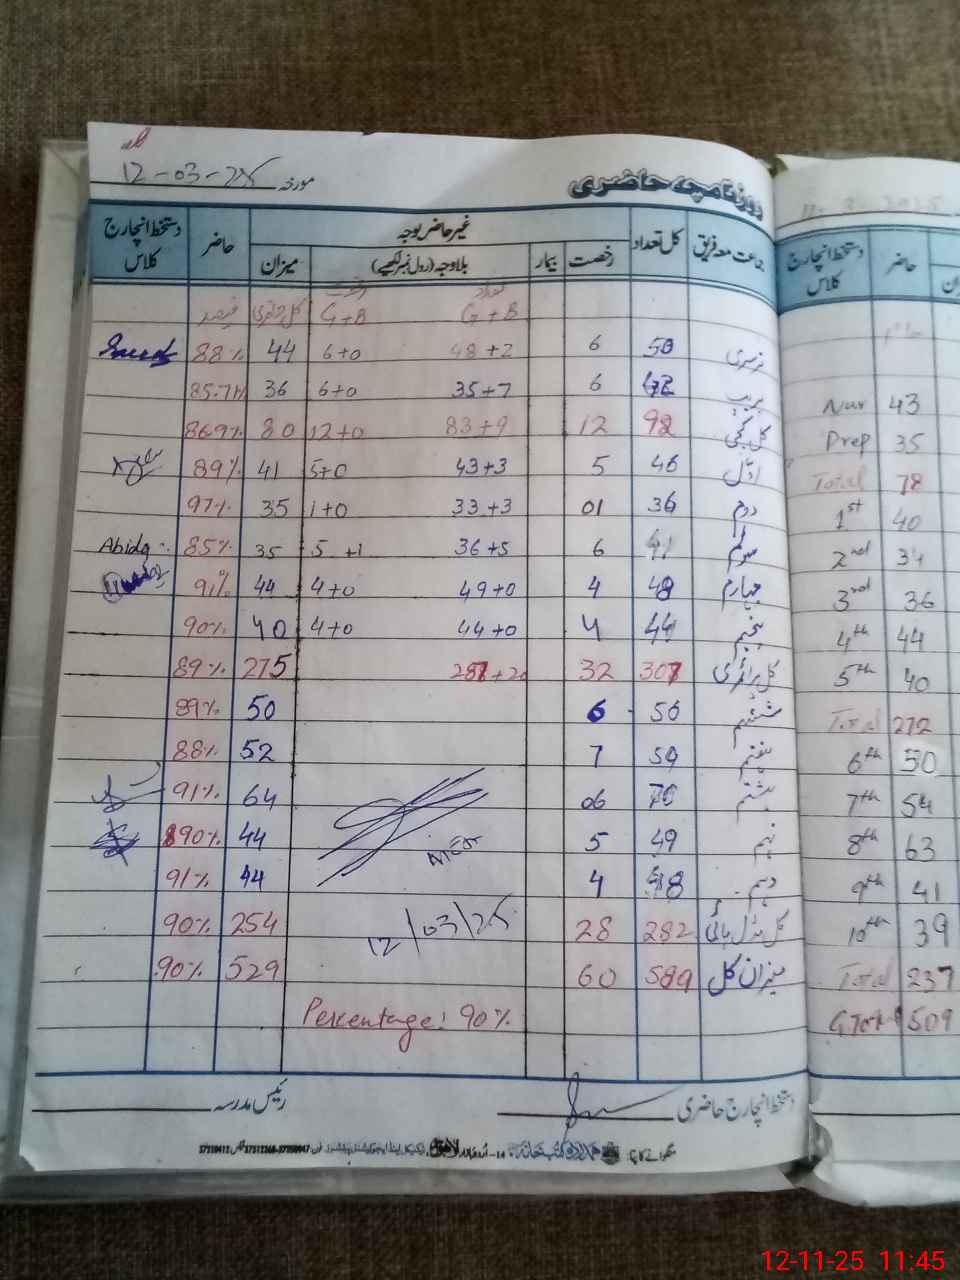 مورخہ 12-03-25
روزنامچہ حاضری
جماعت معہ فریق کل تعداد غیر حاضر بوجہ حاضر دستخط انچارج کلاس
رخصت بیمار بلا وجہ (رول نمبر لکھیے) میزان
تعداد G+B رخصت G+B کل حاضری فیصد
نرسری 50 6 48+2 6+0 44 88%
پریپ 42 6 35+7 6+0 36 85.7%
کل کچی 92 12 83+9 12+0 80 86.9%
اوّل 46 5 43+3 5+0 41 89%
دوم 36 01 33+3 1+0 35 97%
سوئم 41 6 36+5 5+1 35 85% Abida
چہارم 48 4 49+0 4+0 44 91%
پنجم 44 4 44+0 4+0 40 90%
کل پرائمری 307 32 287+20 275 89%
ششم 56 6 50 89%
ہفتم 59 7 52 88%
ہشتم 70 06 64 91%
نہم 49 5 44 90%
دہم 48 4 44 91%
کل مڈل ہائی 282 28 254 90%
میزان کل 589 60 529 90%
12/03/25
Percentage: 90%
دستخط انچارج حاضری
رئیس مدرسہ
دستخط انچارج کلاس حاضر
Nur 43
Prep 35
Total 78
1st 40
2nd 34
3rd 36
4th 44
5th 40
Total 272
6th 50
7th 54
8th 63
9th 41
10th 39
Total 237
G.Total 509
12-11-25 11:45